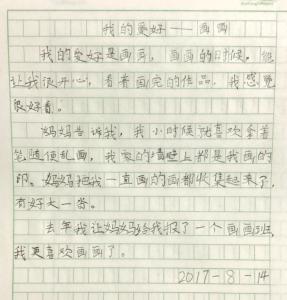 我的爱好——画画
我的爱好是画画，画画的时候，他
让我很开心，看着画完的作品，我感觉
很好看。
妈妈告诉我，我小时候就喜欢拿着
笔随便乱画，我家的墙壁上都是我画的
印。妈妈把我一直画的画都收集起来了，
有好大一沓。
去年我让妈妈给我报了一个画画班，
我更喜欢画画了。
2017-8-14